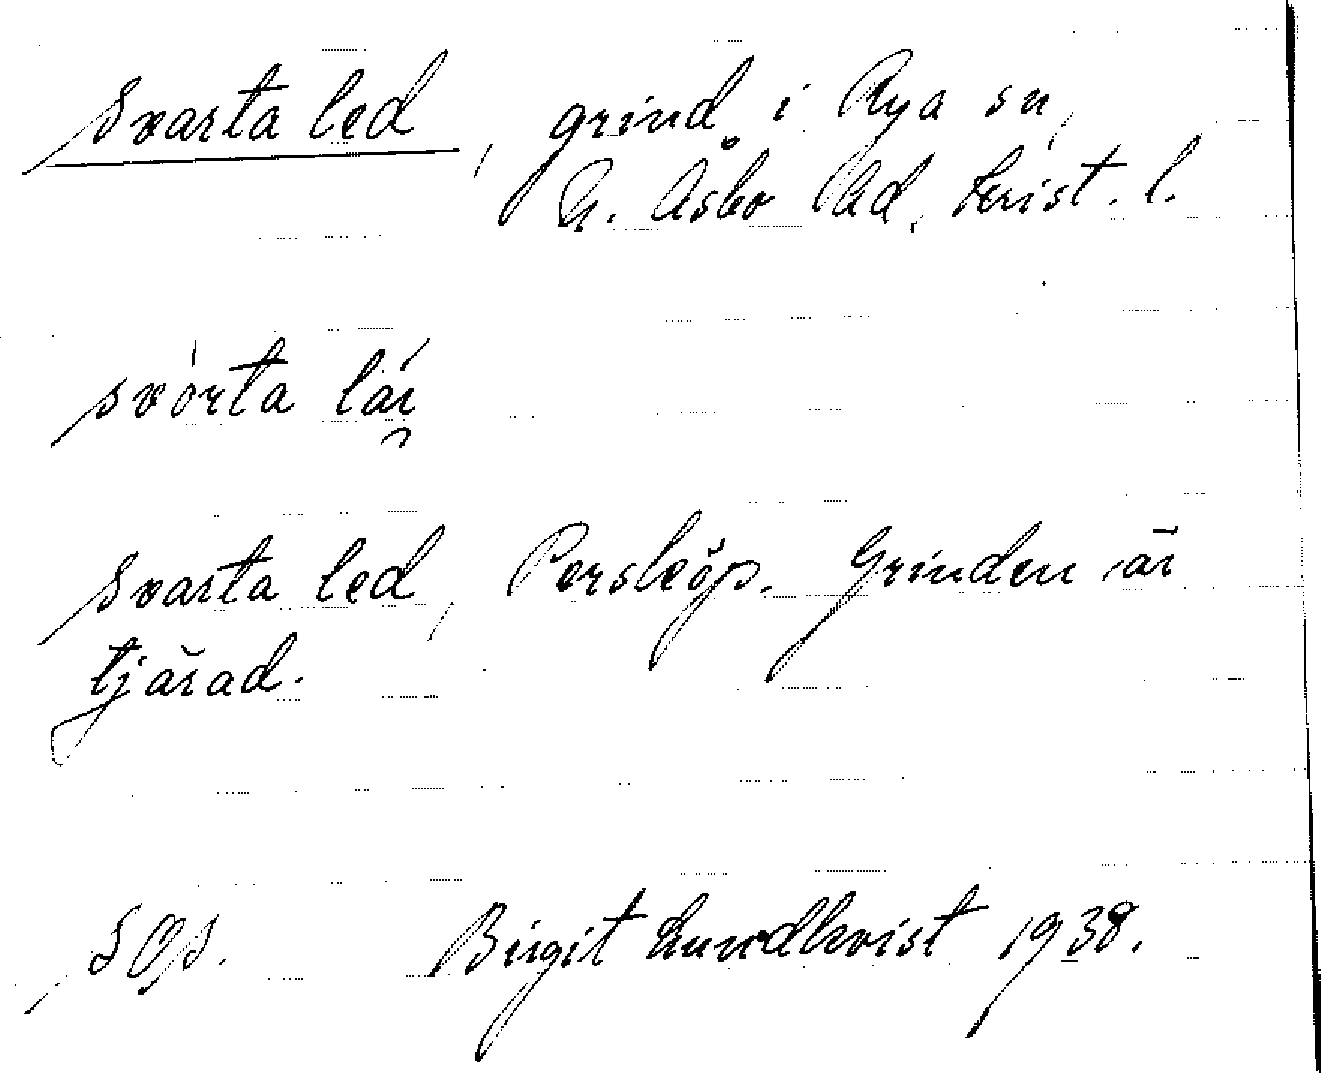 Svarta led, grind i Rya sn,
N. Åsbo hd, Krist. l.
svorta lär
Svarta led, Perstorp. Grinden är
tjärad.
SOp. Birgit Lundkvist 1938.